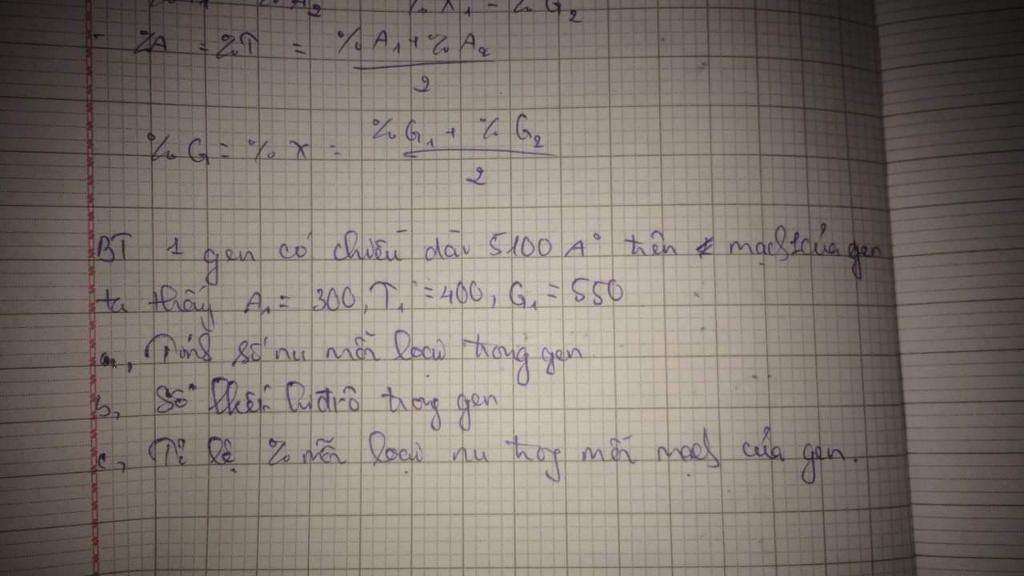 %X1 = %G2
%A = %T = %A1 + %A2 / 2
%G = %X = %G1 + %G2 / 2
BT 1 gen có chiều dài 5100 A° trên mạch 1 của gen
ta thấy A1 = 300, T1 = 400, G1 = 550
a, Tổng số nu mỗi loại trong gen
b, Số liên kết hiđrô trong gen
c, Tỉ lệ % mỗi loại nu trong mỗi mạch của gen.